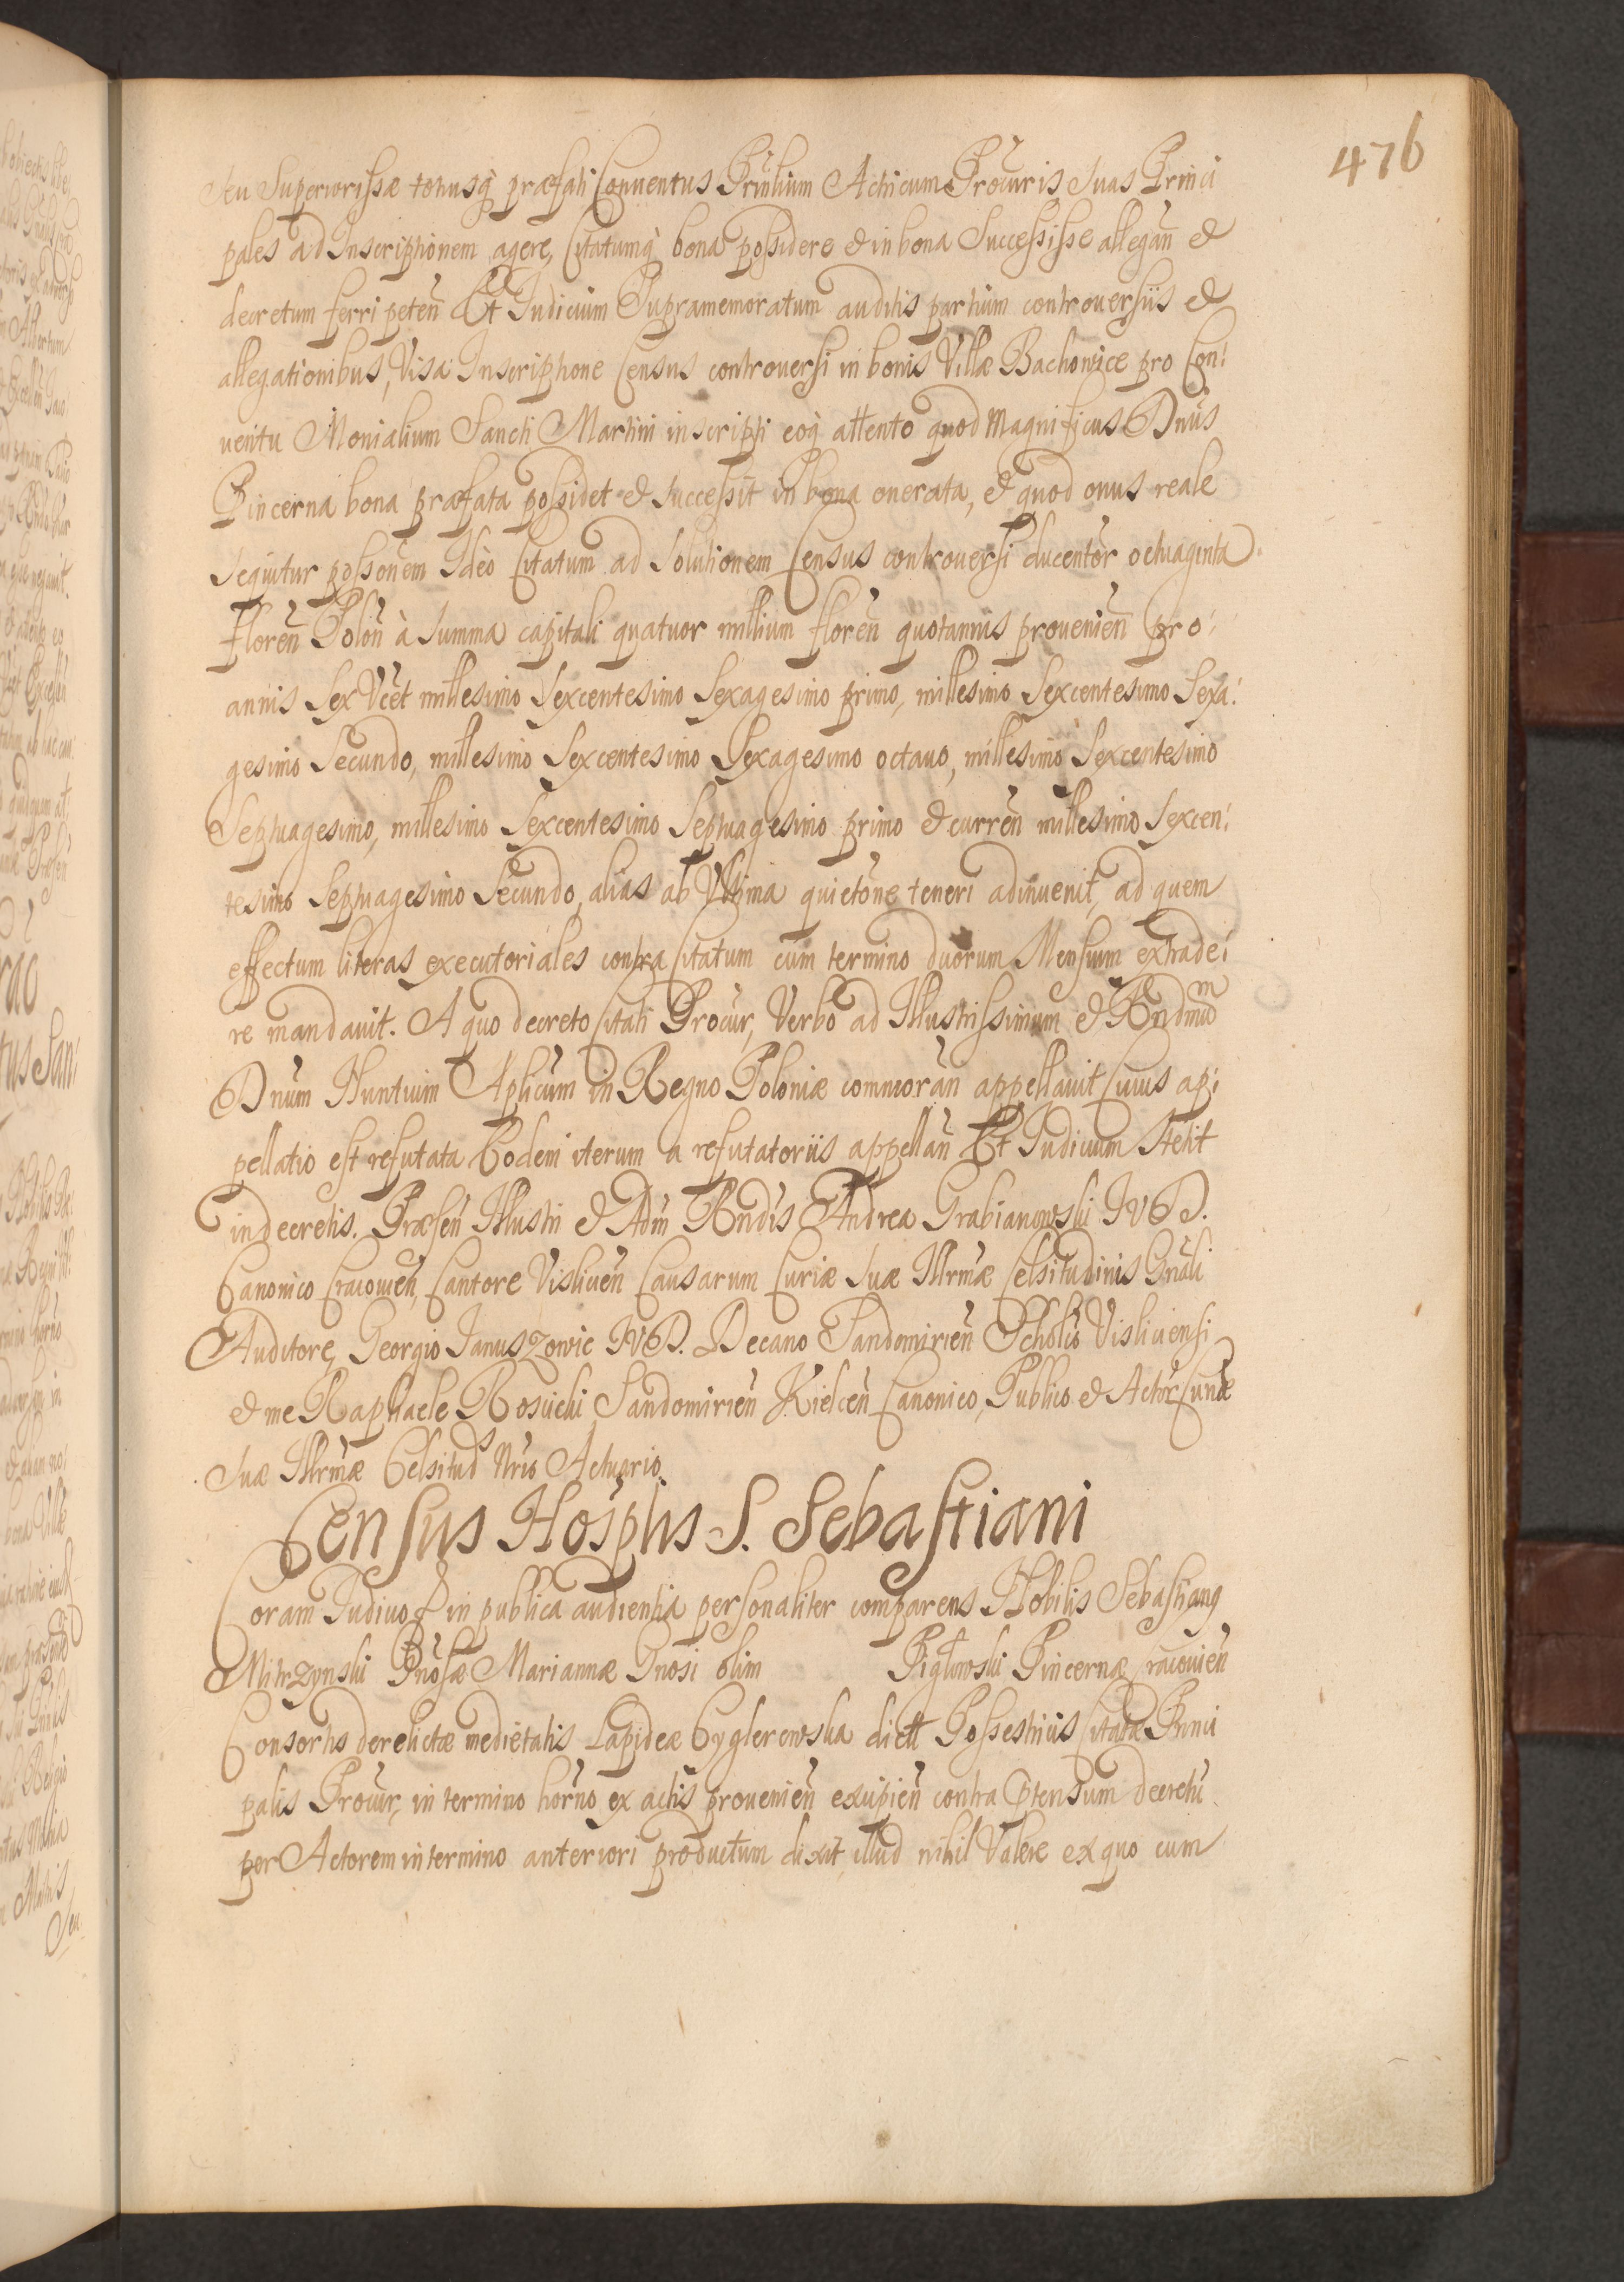 476
seu Superiorissæ totusq̀ præfati Conventus Prinlium Actricum Procuris suas Princi
pales ad Inscriptionem agere, Citatumq̀ bona possidere & in bona Successisse allegan̄ &
decretum ferri peten̄ Et Iudicium Supramemoratum auditis partium controversiis &
allegationibus, Visa Inscriptione Census controversi in bonis Villæ Bachowice pro Con:
ventu Monialium Sancti Martini inscripti eoq̀ attento quod Magnificus Dnus
Pincerna bona præfata possidet & successit in bona onerata, & quod onus reale
sequitur possonem Ideo Citatum ad Solutionem Census controversi ducentor octuaginta
floren̄ Polon̄ à summa capitali quatuor millium floren̄ quotannis provenien̄ pro:
annis Sex Vcet millesimo Sexcentesimo Sexagesimo primo, millesimo Sexcentesimo Sexa:
gesimo Secundo, millesimo Sexcentesimo Sexagesimo octavo, millesimo Sexcentesimo
Septuagesimo, millesimo Sexcentesimo Septuagesimo primo & curren̄ millesimo Sexcen:
tesimo Septuagesimo Secundo, alias ab Vltima quietone teneri adinvenit, ad quem
effectum literas executoriales contra Citatum cum termino duorum Mensium extrade:
re mandavit. A quo decreto Citati Procur, Verbo ad Illustrissimum & Rndmum
Dnum Nuntium Aplicum in Regno Poloniæ commoran̄ appellavit Cuius ap:
pellatio est refutata Eodem iterum a refutatoriis appellan̄ Et Iudicium Stetit
in decretis. Præsen̄ Illustri & Adm Rndis Andrea Grabianowski IVD.
Canonico Cracovien̄, Cantore Vislicen̄ Causarum Curiæ Suæ Illrmæ Celsitudinis Gn̄ali
Auditore, Georgio Januszowic IVD. Decano Sandomirien̄ Scholis Visliciensi
& me Raphaele Rosicki Sandomirien̄ Kielcen̄ Canonico, Publico & Actor Curiæ
Suæ Illrmæ Celsituds Nrio Actuario.
Census Hosplis S. Sebastiani
Coram Iudicio & in publica audientia personaliter comparens Nobilis Sebastiang
Mitrzynski Gnosæ Mariannæ Gnosi olim Piglowski Pincernæ Cracovien̄
Consortis derelictæ medietatis Lapideæ Cyglerowska dictt Possestricis Citatæ Princi
palis Procur, in termino horno ex actis provenien̄ excipien̄ contra ptensum decretū
per Actorem in termino anteriori productum dixit, illud nihil Valere ex quo cum